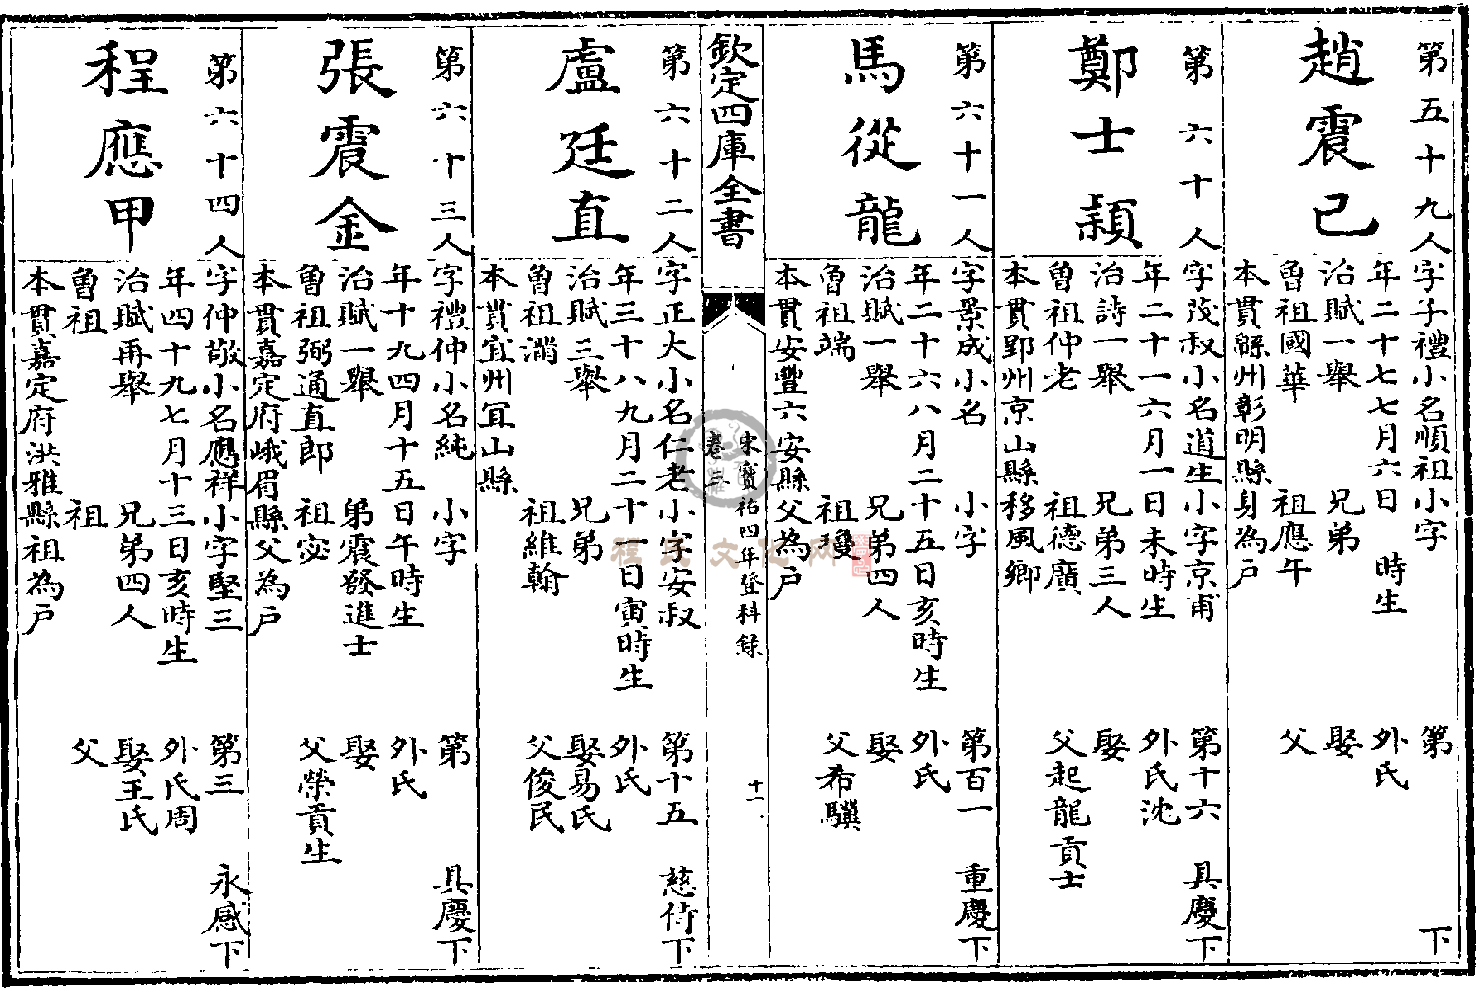 第五十九人
趙震己
字子禮小名順祖小字 第 下
年二十七七月六日 時生 外氏
治賦一舉 兄弟 娶
曾祖國華 祖應午 父
本貫緜州彰明縣身為戶
第六十人
鄭士穎
字茂叔小名道生小字京甫 第十六 具慶下
年二十一六月一日未時生 外氏沈
治詩一舉 兄弟三人 娶
曾祖仲老 祖德廣 父起龍貢士
本貫郢州京山縣移風鄉
第六十一人
馬從龍
字景成小名 小字 第百一 重慶下
年二十六八月二十五日亥時生 外氏
治賦一舉 兄弟四人 娶
曾祖端 祖瓊 父希驥
本貫安豐六安縣父為戶
欽定四庫全書
宋寶祐四年登科錄
卷三
十一
第六十二人
盧廷直
字正大小名仁老小字安叔 第十五 慈侍下
年三十八九月二十一日寅時生 外氏
治賦三舉 兄弟 娶易氏
曾祖滿 祖維翰 父俊民
本貫宜州宜山縣
第六十三人
張震金
字禮仲小名純 小字 第 具慶下
年十九四月十五日午時生 外氏
治賦一舉 弟震發進士 娶
曾祖弼通直郎 祖宓 父榮貢生
本貫嘉定府峨眉縣父為戶
第六十四人
程應甲
字仲敬小名應祥小字堅三 第三 永感下
年四十九七月十三日亥時生 外氏周
治賦再舉 兄弟四人 娶王氏
曾祖 祖 父
本貫嘉定府洪雅縣祖為戶
程氏文化網